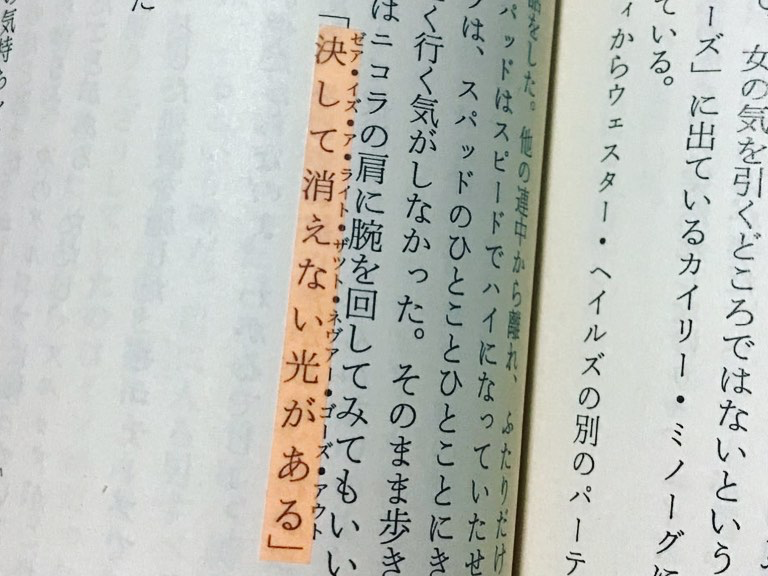 女の気を引くどころではないという
ーズ」に出ているカイリー・ミノーグに
ている。
ィからウェスター・ヘイルズの別のパーテ
をした。他の連中から離れ、ふたりだけ
パッドはスピードでハイになっていたせ
は、スパッドのひとことひとことにき
く行く気がしなかった。そのまま歩き
はニコラの肩に腕を回してみてもいい
ゼア・イズ・ア・ライト・ザット・ネヴァー・ゴーズ・アウト
「決して消えない光がある」
た
の気持ち